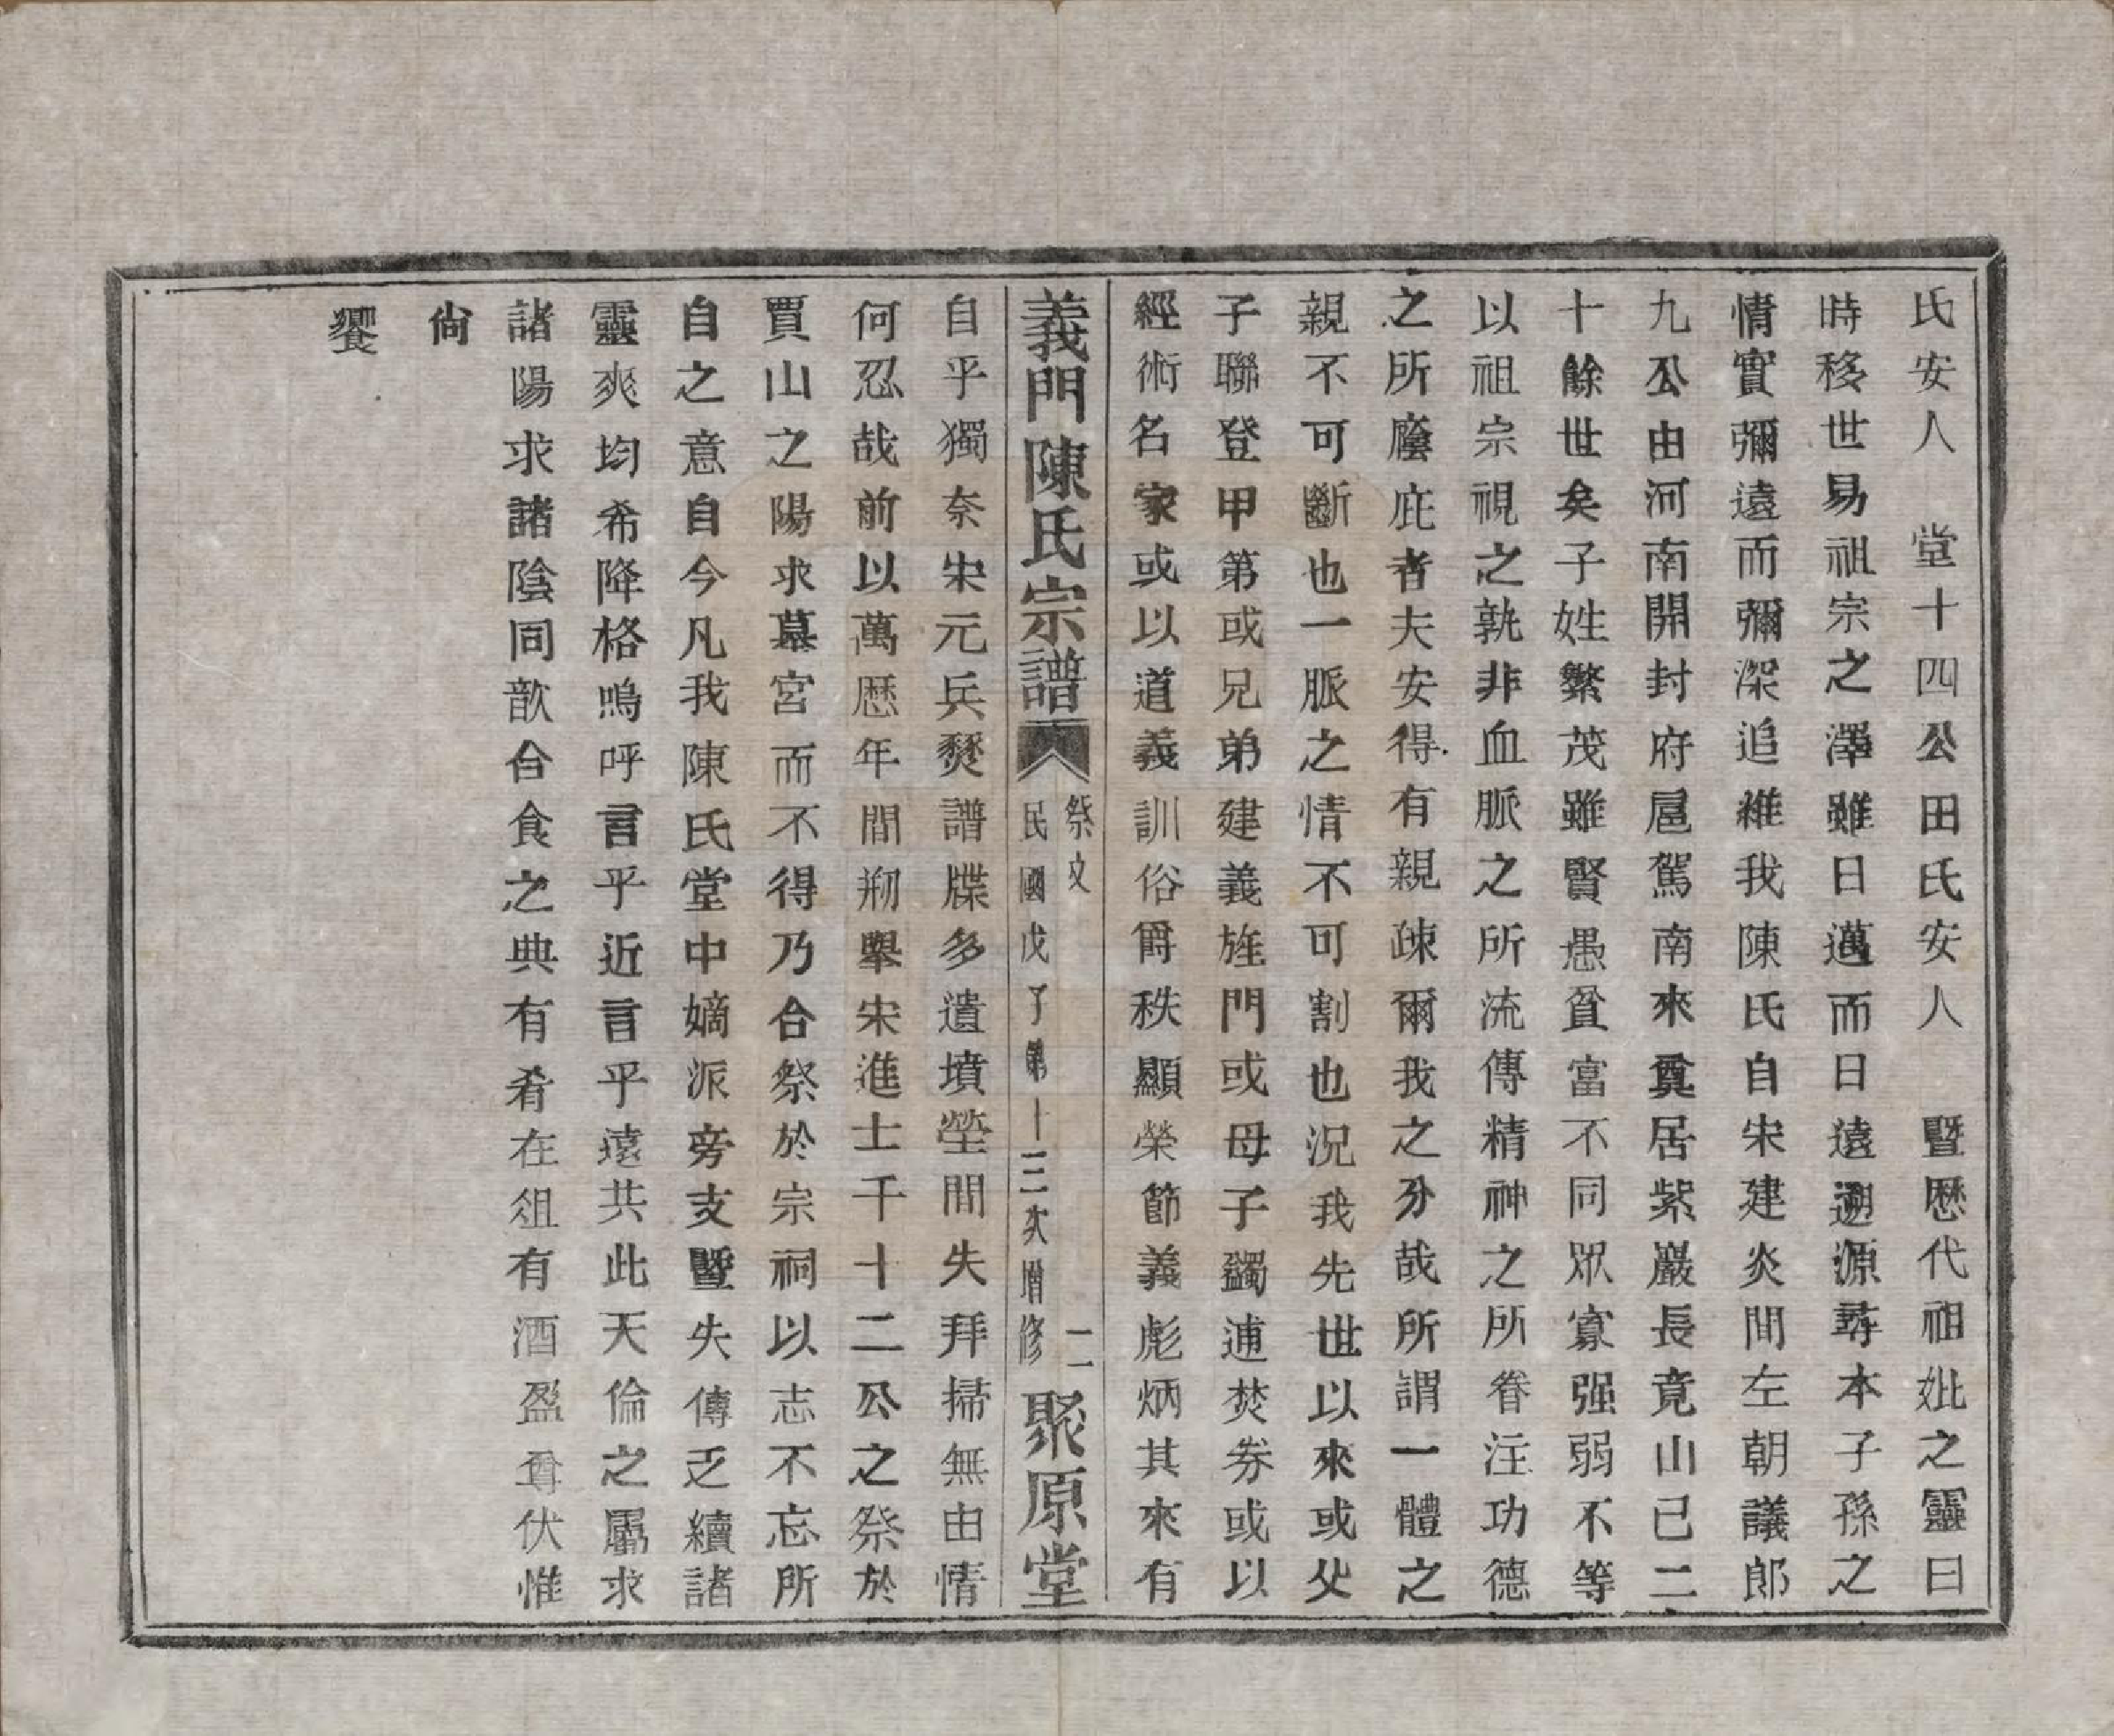 氏安人　堂十四公田氏安人　暨歷代祖妣之靈曰
時移世易祖宗之澤雖日邁而日遠遡源尋本子孫之
情實彌遠而彌深追維我陳氏自宋建炎間左朝議郎
九公由河南開封府扈駕南來奠居紫巖長竟山已二
十餘世矣子姓繁茂雖賢愚貧富不同眾寡强弱不等
以祖宗視之孰非血脈之所流傳精神之所眷注功德
之所廕庇者夫安得有親疎爾我之分哉所謂一體之
親不可斷也一脈之情不可割也況我先世以來或父
子聯登甲第或兄弟建義旌門或母子蠲逋焚券或以
經術名家或以道義訓俗爵秩顯榮節義彪炳其來有
義門陳氏宗譜
祭文
二
民國戊子第十三次增修
聚原堂
自乎獨奈宋元兵燹譜牒多遺墳塋間失拜掃無由情
何忍哉前以萬歷年間剏舉宋進士千十二公之祭於
賈山之陽求墓宮而不得乃合祭於宗祠以志不忘所
自之意自今凡我陳氏堂中嫡派旁支暨失傳乏續諸
靈爽均希降格嗚呼言乎近言乎遠共此天倫之屬求
諸陽求諸陰同歆合食之典有肴在俎有酒盈尊伏惟
尙
饗